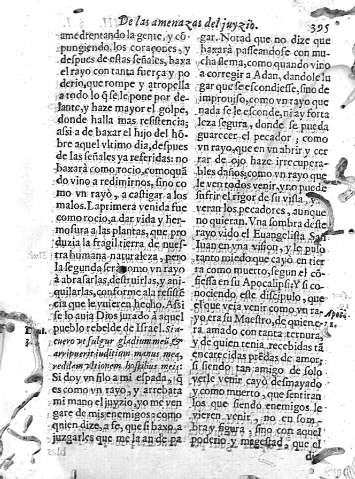 De las amenazas del juyzio. 395
amedrentando la gente, y cõ-
pungiendo los coraçones, y
despues de estas señales, baxa
el rayo con tanta fuerça y po
derio, que rompe y atropella
a todo lo q̃ se le pone por de-
lante, y haze mayor el golpe,
donde halla mas resistencia;
assi a de baxar el hijo del hõ-
bre aquel vltimo dia, despues
de las señales ya referidas: no
baxarà como rocio, como quã
do vino a redimirnos, sino co
mo vn rayo, a castigar a los
malos. La primera venida fue
como rocio, a dar vida y her-
mosura a las plantas, que pro
duzia la fragil tierra de nues-
tra humana naturaleza, pero
la segunda serà como vn rayo
à abrasarlas, destruirlas, y ani-
quilarlas, conforme a la resis̃tẽ
cia que le vuieren hecho. Assi
se lo auia Dios jurado à aquel
pueblo rebelde de Israel. Sia-
cuero vt fulgur gladium meũ &
arripuerit iuditium manus mea,
reddam vltionem hostibus meis:
Si doy vn filo a mi espada, q̃
es como vn rayo, y arrebata
mi mano el juyzio, yo me ven
garè de mis enemigos: como
quien dize, a fe, que si baxo, a
juzgarles que me la an de pa
gar. Notad que no dize que
baxarà passeandose con mu-
cha flema, como quando vino
a corregir a Adan, dandole lu
gar que se escondiesse, sino de
improuiso, como vn rayo que
nada se le esconde, ni ay forta
leza segura, donde se pueda
guarecer el pecador; como
vn rayo, que en vn abrir y cer
rar de ojo haze irrecupera-
bles daños; como vn rayo que
le ven todos venir, y no puede
sufrir el rigor de su vista, y
veran los pecadores, aunque
no quieran. Vna sombra deste
rayo vido el Euangelista San
Iuan en vna vision, y le puso
tanto miedo que cayò en tier
ra como muerto, segun el cõ-
fiessa en su Apocalipsi: Y si co-
nociendo este discipulo, que
el que veia venir como vn ra-
yo, era su Maestro, de quien e-
ra amado con tanta ternura,
y de quien tenia recebidas tã
encarecidas prẽdas de amor;
si siendo tan amigo de solo
verle venir cayò desmayado
y como muerto, que sentiran
los que siendo enemigos le
vieren venir, no en som-
bra y figura, sino con aquel
poderio y magestad, que el
di
Apoc.
1.